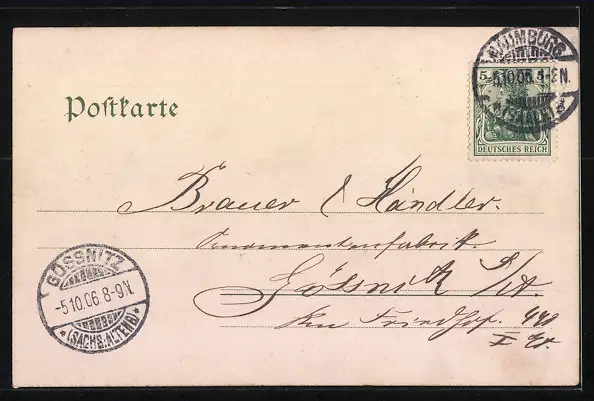 NAUMBURG
-5.10.06. 5-6N.
* (SAALE) *
5
DEUTSCHES REICH
Postkarte
Brauer & Händler.
Ornamentenfabrik.
Gössnitz S/A.
Am Friedhof. 440
GÖSSNITZ
-5.10.06 8-9N.
*(SACHS.ALTENB)*